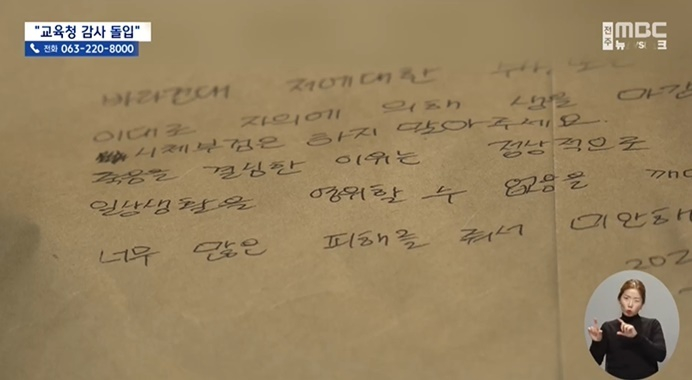 "교육청 감사 돌입"
전화 063-220-8000
전주 MBC
뉴스데스크
바라건대 저에대한
이대로 자의에 의해 생을 마감
시체부검은 하지 말아주세요.
죽음을 결심한 이유는 정상적으로
일상생활을 영위할 수 없음을 깨
너무 많은 피해를 줘서 미안해
202